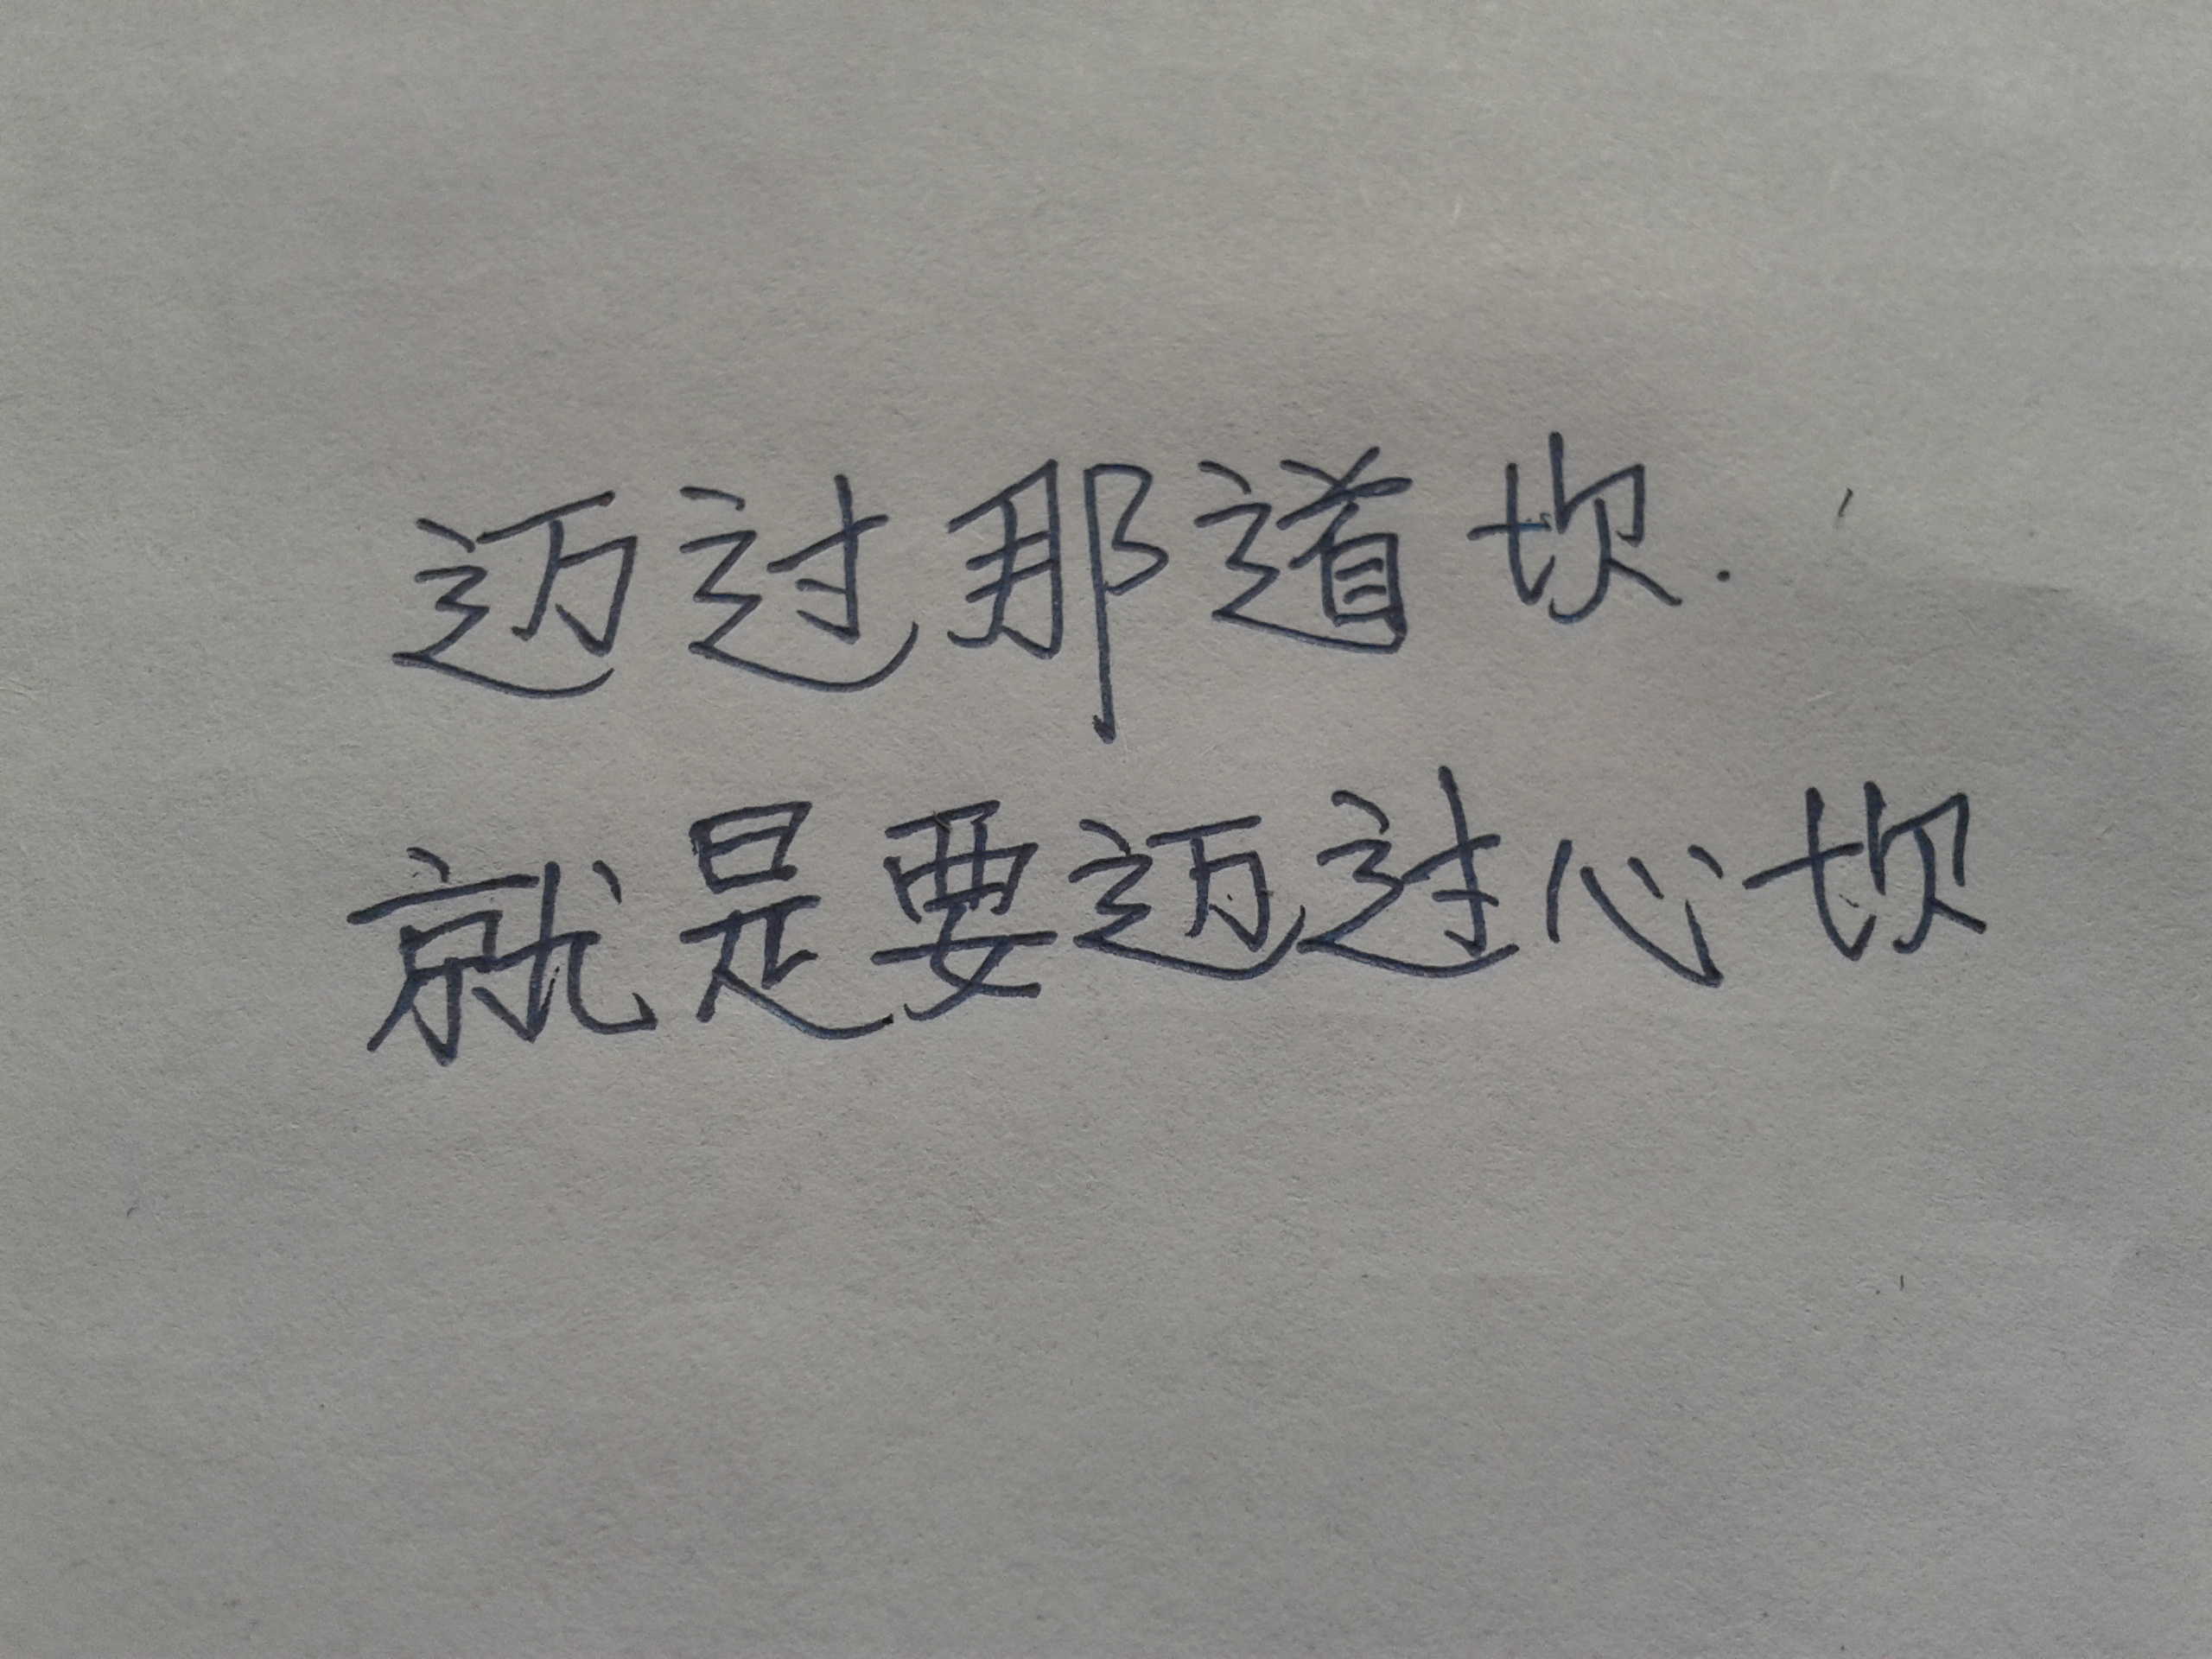 迈过那道坎.
就是要迈过心坎